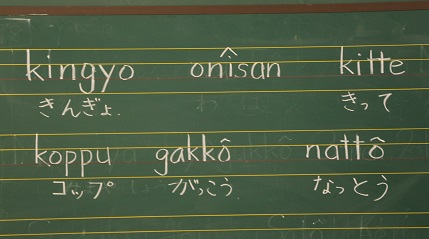 kingyo onîsan kitte
きんぎょ. きって
koppu gakkô nattô
コップ がっこう なっとう